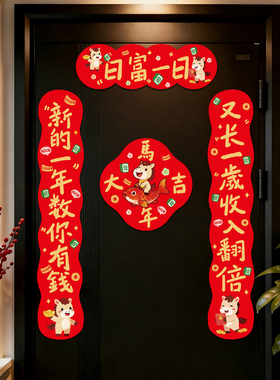 日富一日
又长一歲收入翻倍
新的一年数你有錢
馬年大吉